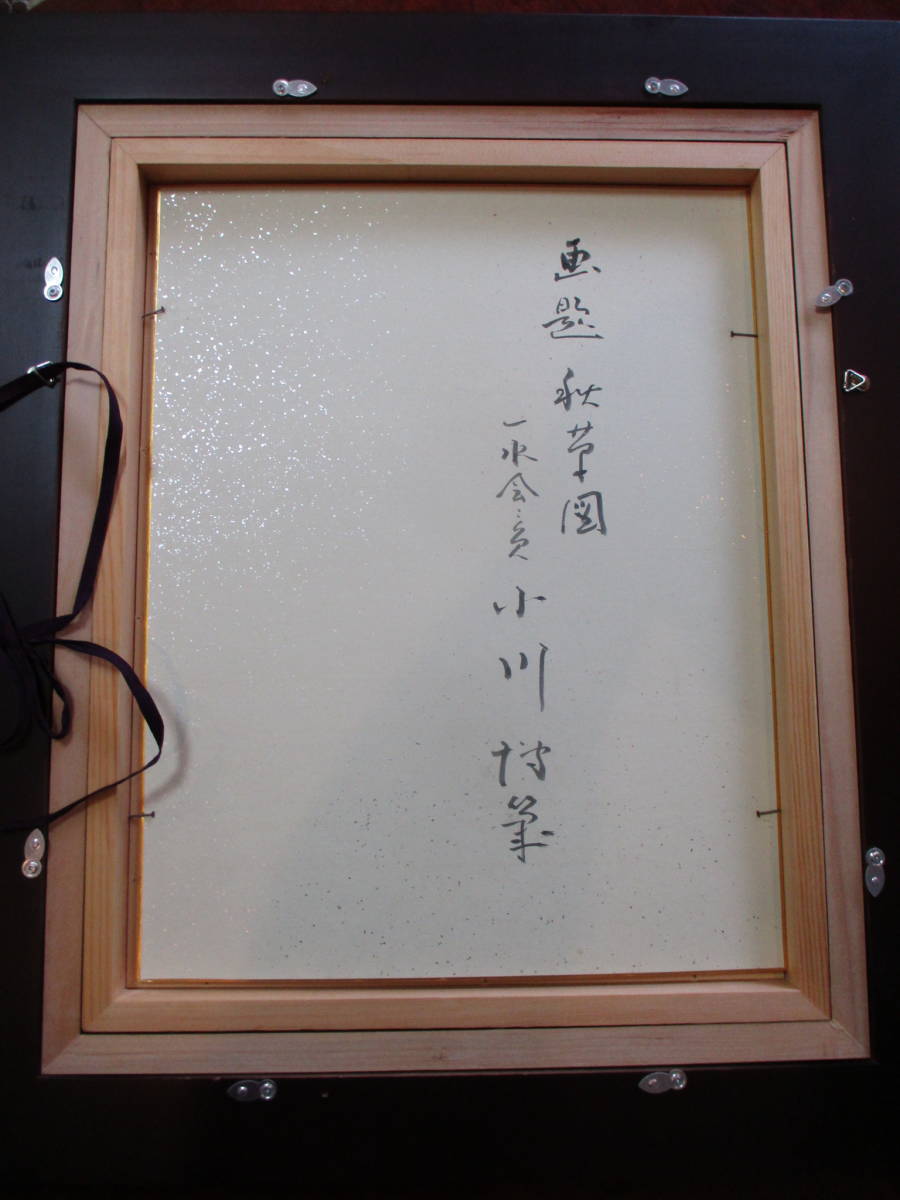 画題 秋草図
一水会会員 小川博史筆